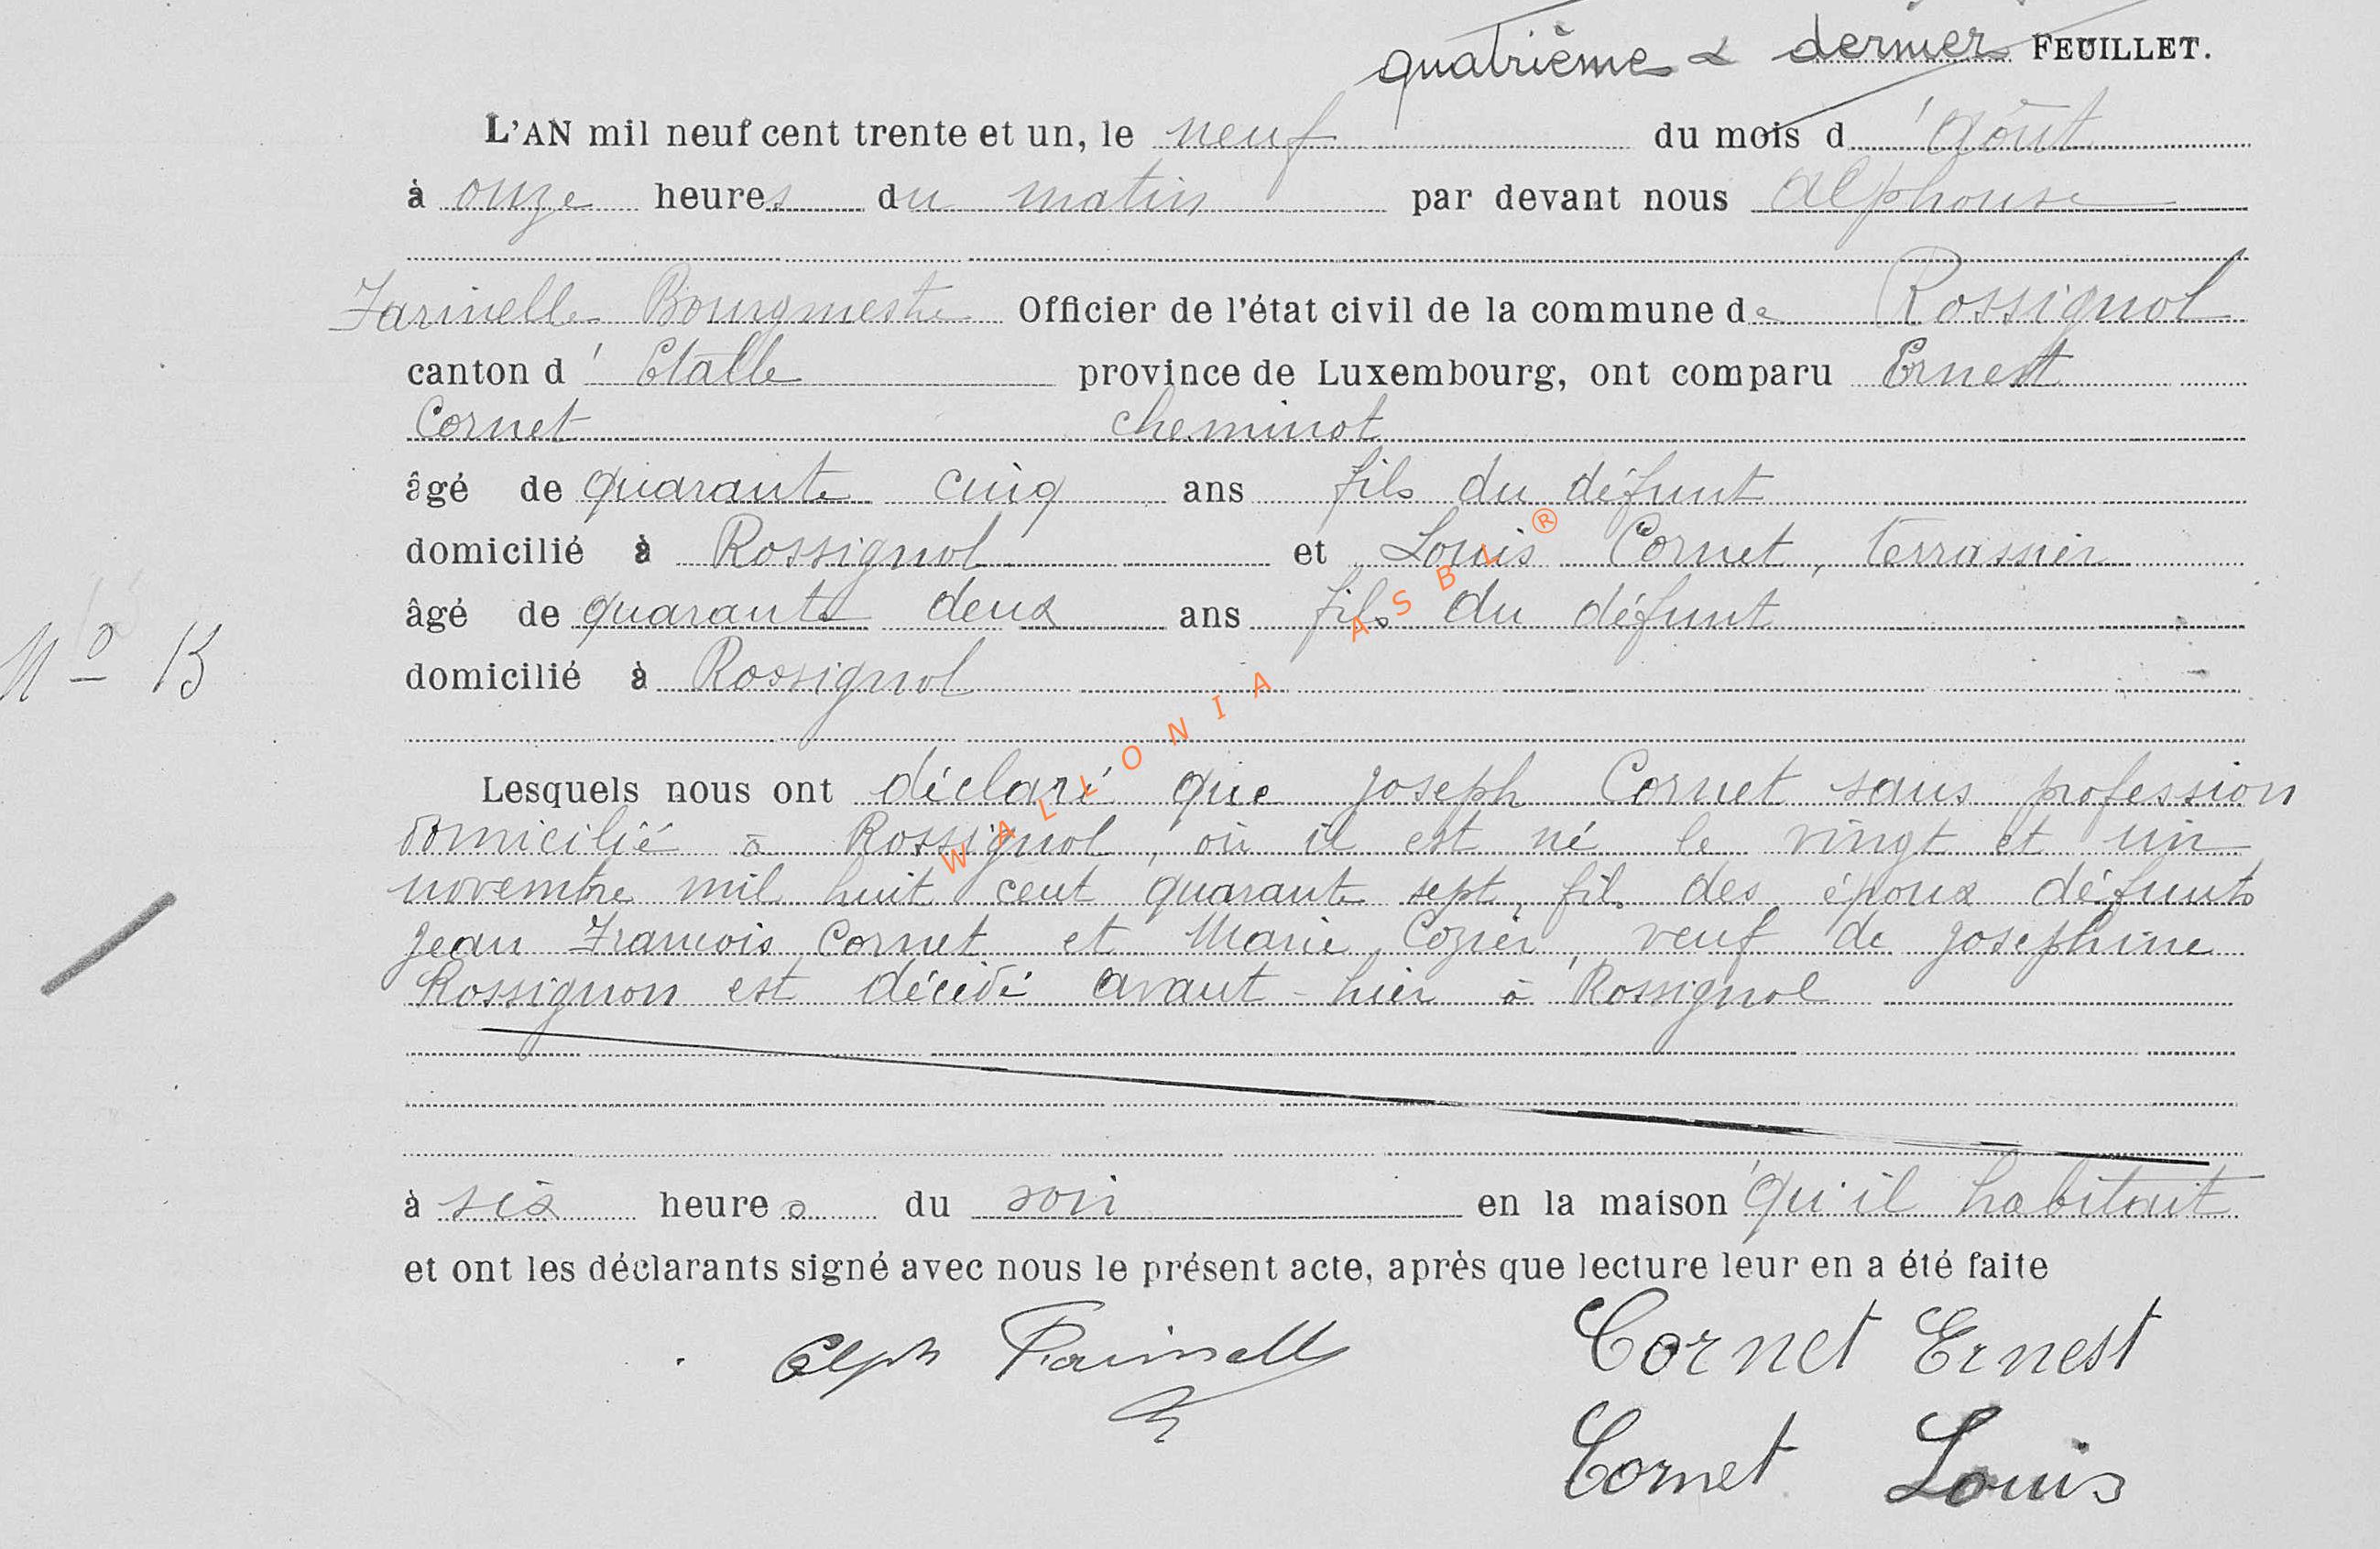 quatrième & dernier FEUILLET.
L'AN mil neuf cent trente et un, le neuf du mois d'Août
à onze heures du matin par devant nous Alphonse
Farinelle Bourgmestre Officier de l'état civil de la commune de Rossignol
canton d'Etalle province de Luxembourg, ont comparu Ernest
Cornet cheminot
âgé de quarante cinq ans fils du défunt
domicilié à Rossignol et Louis Cornet, terrassier
âgé de quarante deux ans fils du défunt
N° 13
domicilié à Rossignol
Lesquels nous ont déclaré que Joseph Cornet sans profession
domicilié à Rossignol, où il est né le vingt et un
novembre mil huit cent quarante sept, fils des époux défunts
Jean François Cornet et Marie Cozier, veuf de Joséphine
Rossignon est décédé avant-hier à Rossignol
à six heures du soir en la maison qu'il habitait
et ont les déclarants signé avec nous le présent acte, après que lecture leur en a été faite
Alph Farinelle Cornet Ernest
Cornet Louis
WALLONIA ASBL ®